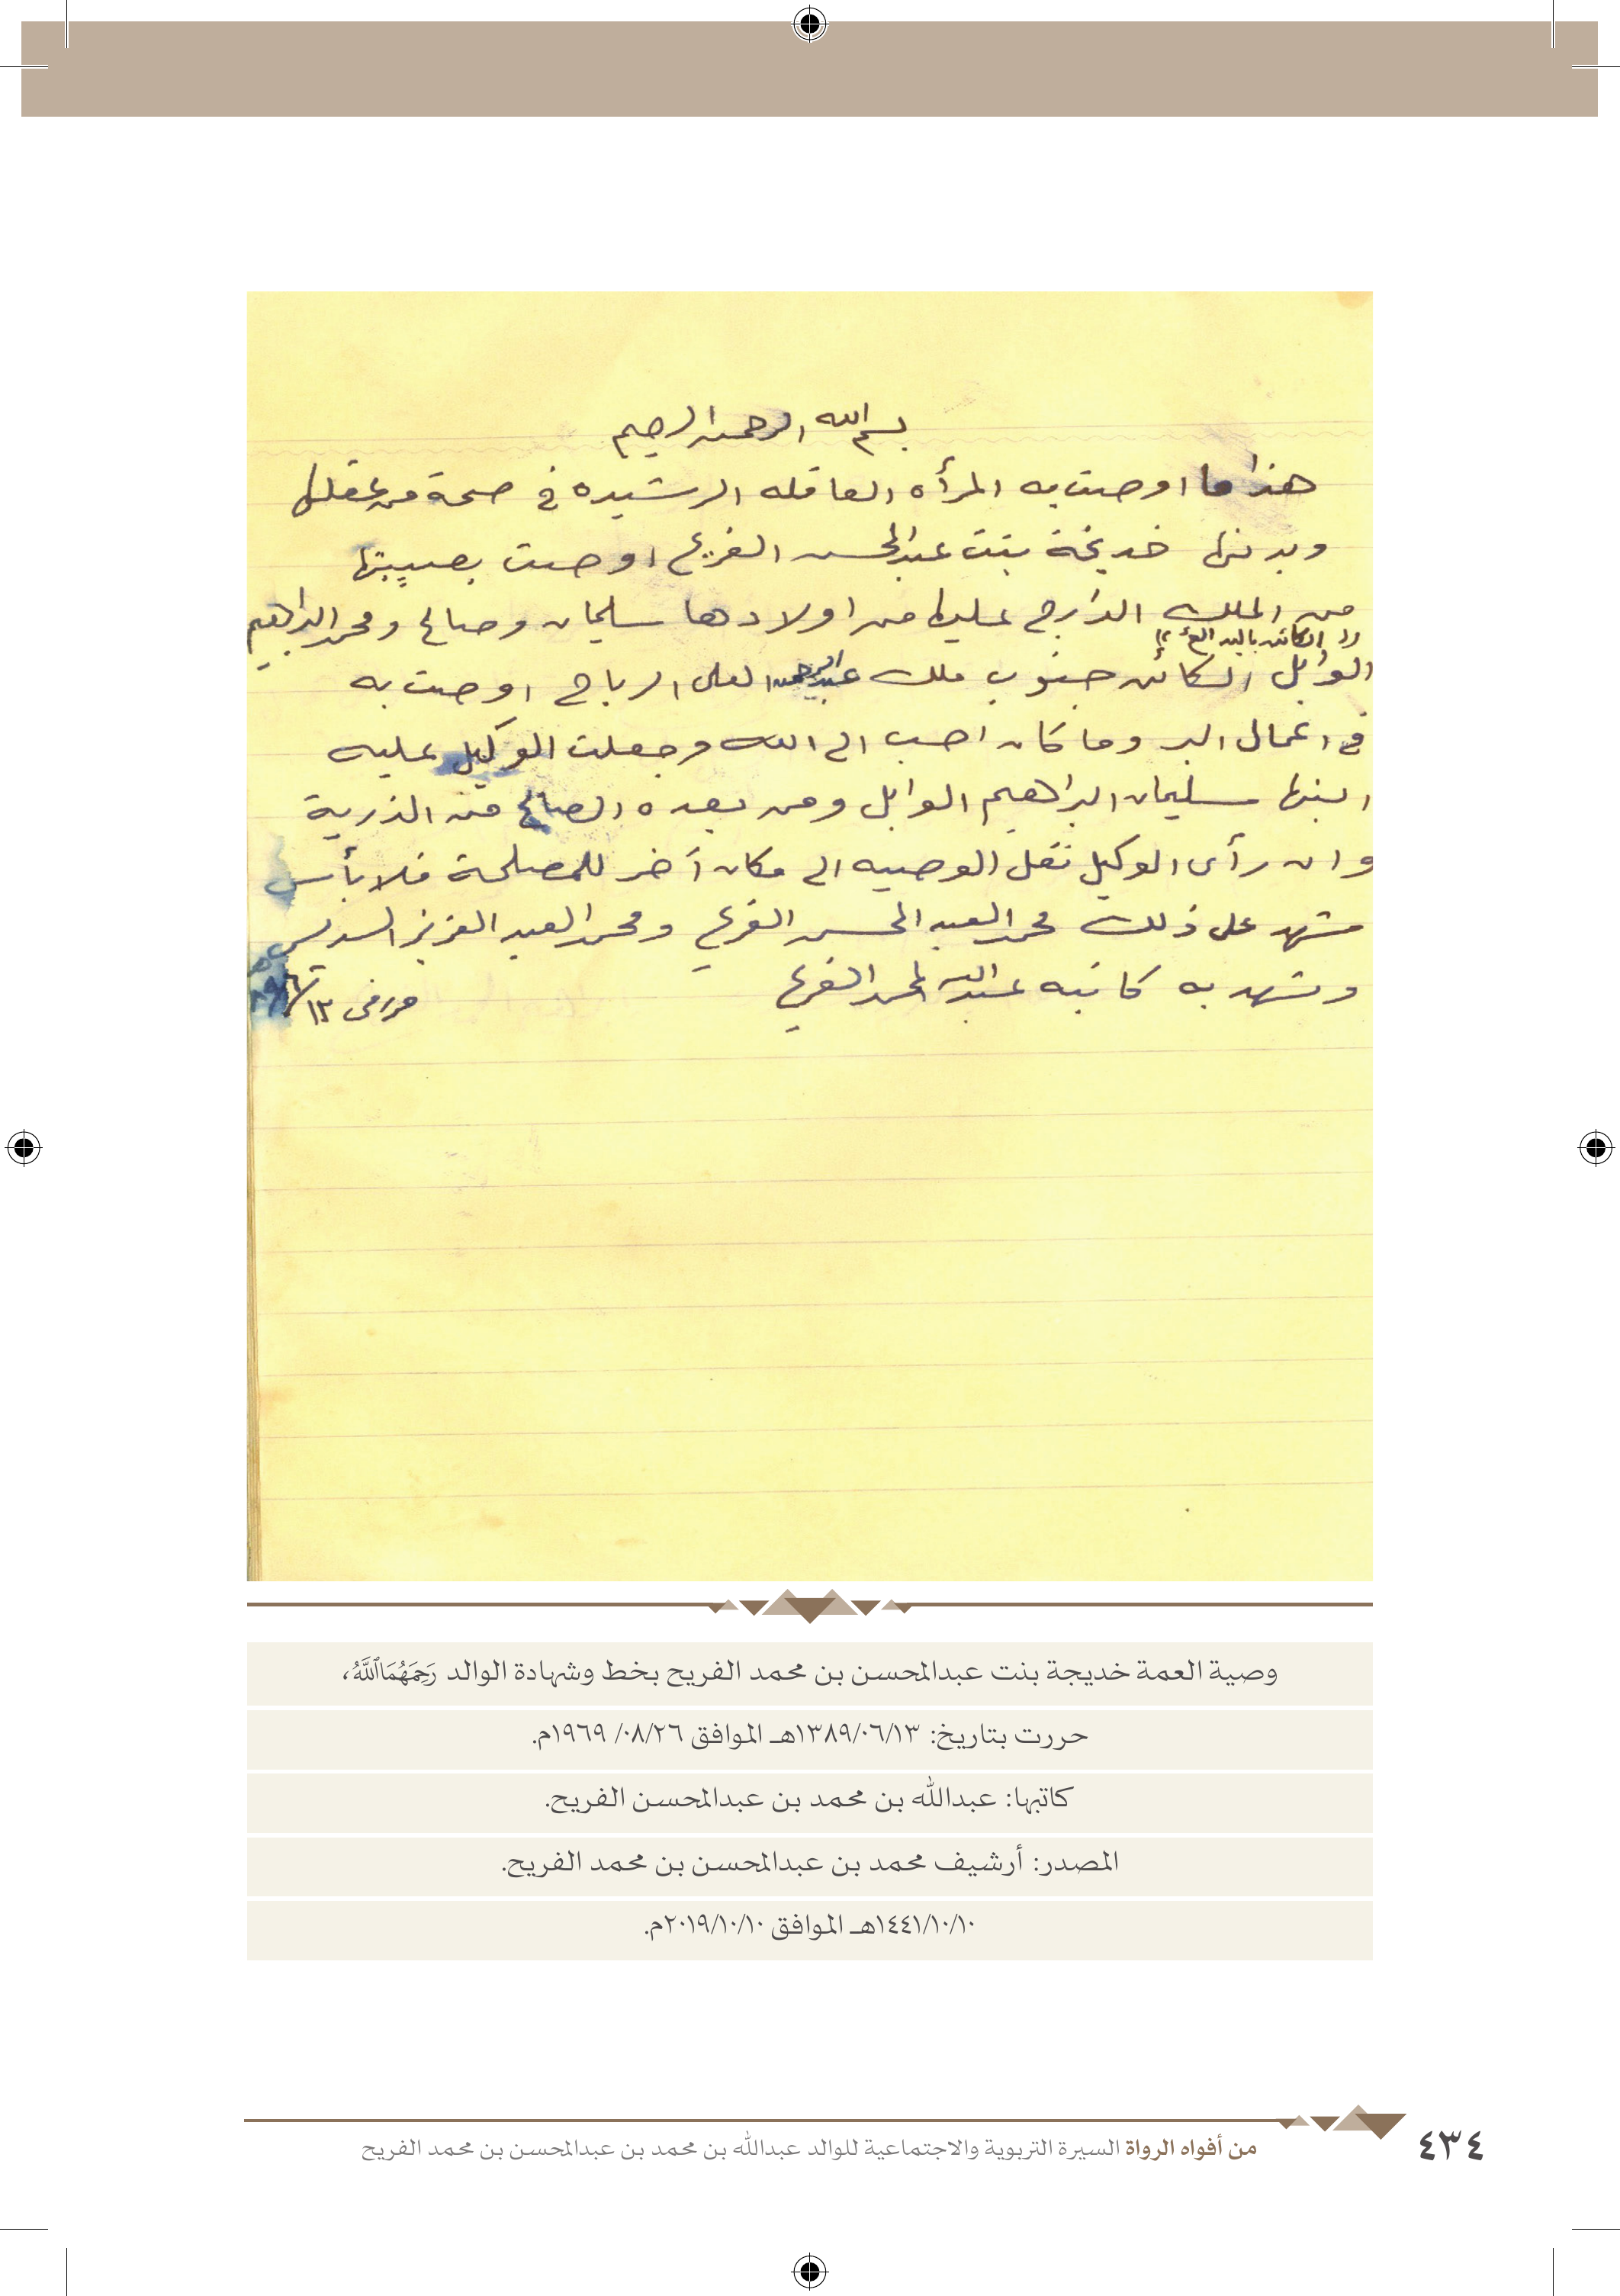 بسم الله الرحمن الرحيم
هذا ما اوصت به المرأه العاقله الرشيده في صحة من عقلها
وبدنها خديجة بنت عبدالمحسن الفريح اوصت بصيبتها
من الملك الدارج عليها من اولادها سليمان وصالح ومحمد البراهيم
(( الكائن بالبدائع ))
الوابل الكائن جنوب ملك عبدالرحمن العلى الرباح اوصت به
في اعمال البر وما كان احب الى الله وجعلت الوكيل عليه
ابنها سليمان البراهيم الوابل ومن بعده الصالح من الذرية
وان رأى الوكيل نقل الوصيه الى مكان آخر للمصلحة فلا بأس
شهد على ذلك محمد العبد المحسن الفريح ومحمد العبد العزيز السديس
وشهد به كاتبه عبدالله المحمد الفريح
حرر في ١٣/٦
وصية العمة خديجة بنت عبدالمحسن بن محمد الفريح بخط وشهادة الوالد رَحِمَهُمَا اللَّهُ،
حررت بتاريخ: ١٣٨٩/٠٦/١٣هـ الموافق ٠٨/٢٦/ ١٩٦٩م.
كاتبها: عبدالله بن محمد بن عبدالمحسن الفريح.
المصدر: أرشيف محمد بن عبدالمحسن بن محمد الفريح.
١٤٤١/١٠/١٠هـ الموافق ٢٠١٩/١٠/١٠م.
من أفواه الرواة السيرة التربوية والاجتماعية للوالد عبدالله بن محمد بن عبدالمحسن بن محمد الفريح
٤٣٤